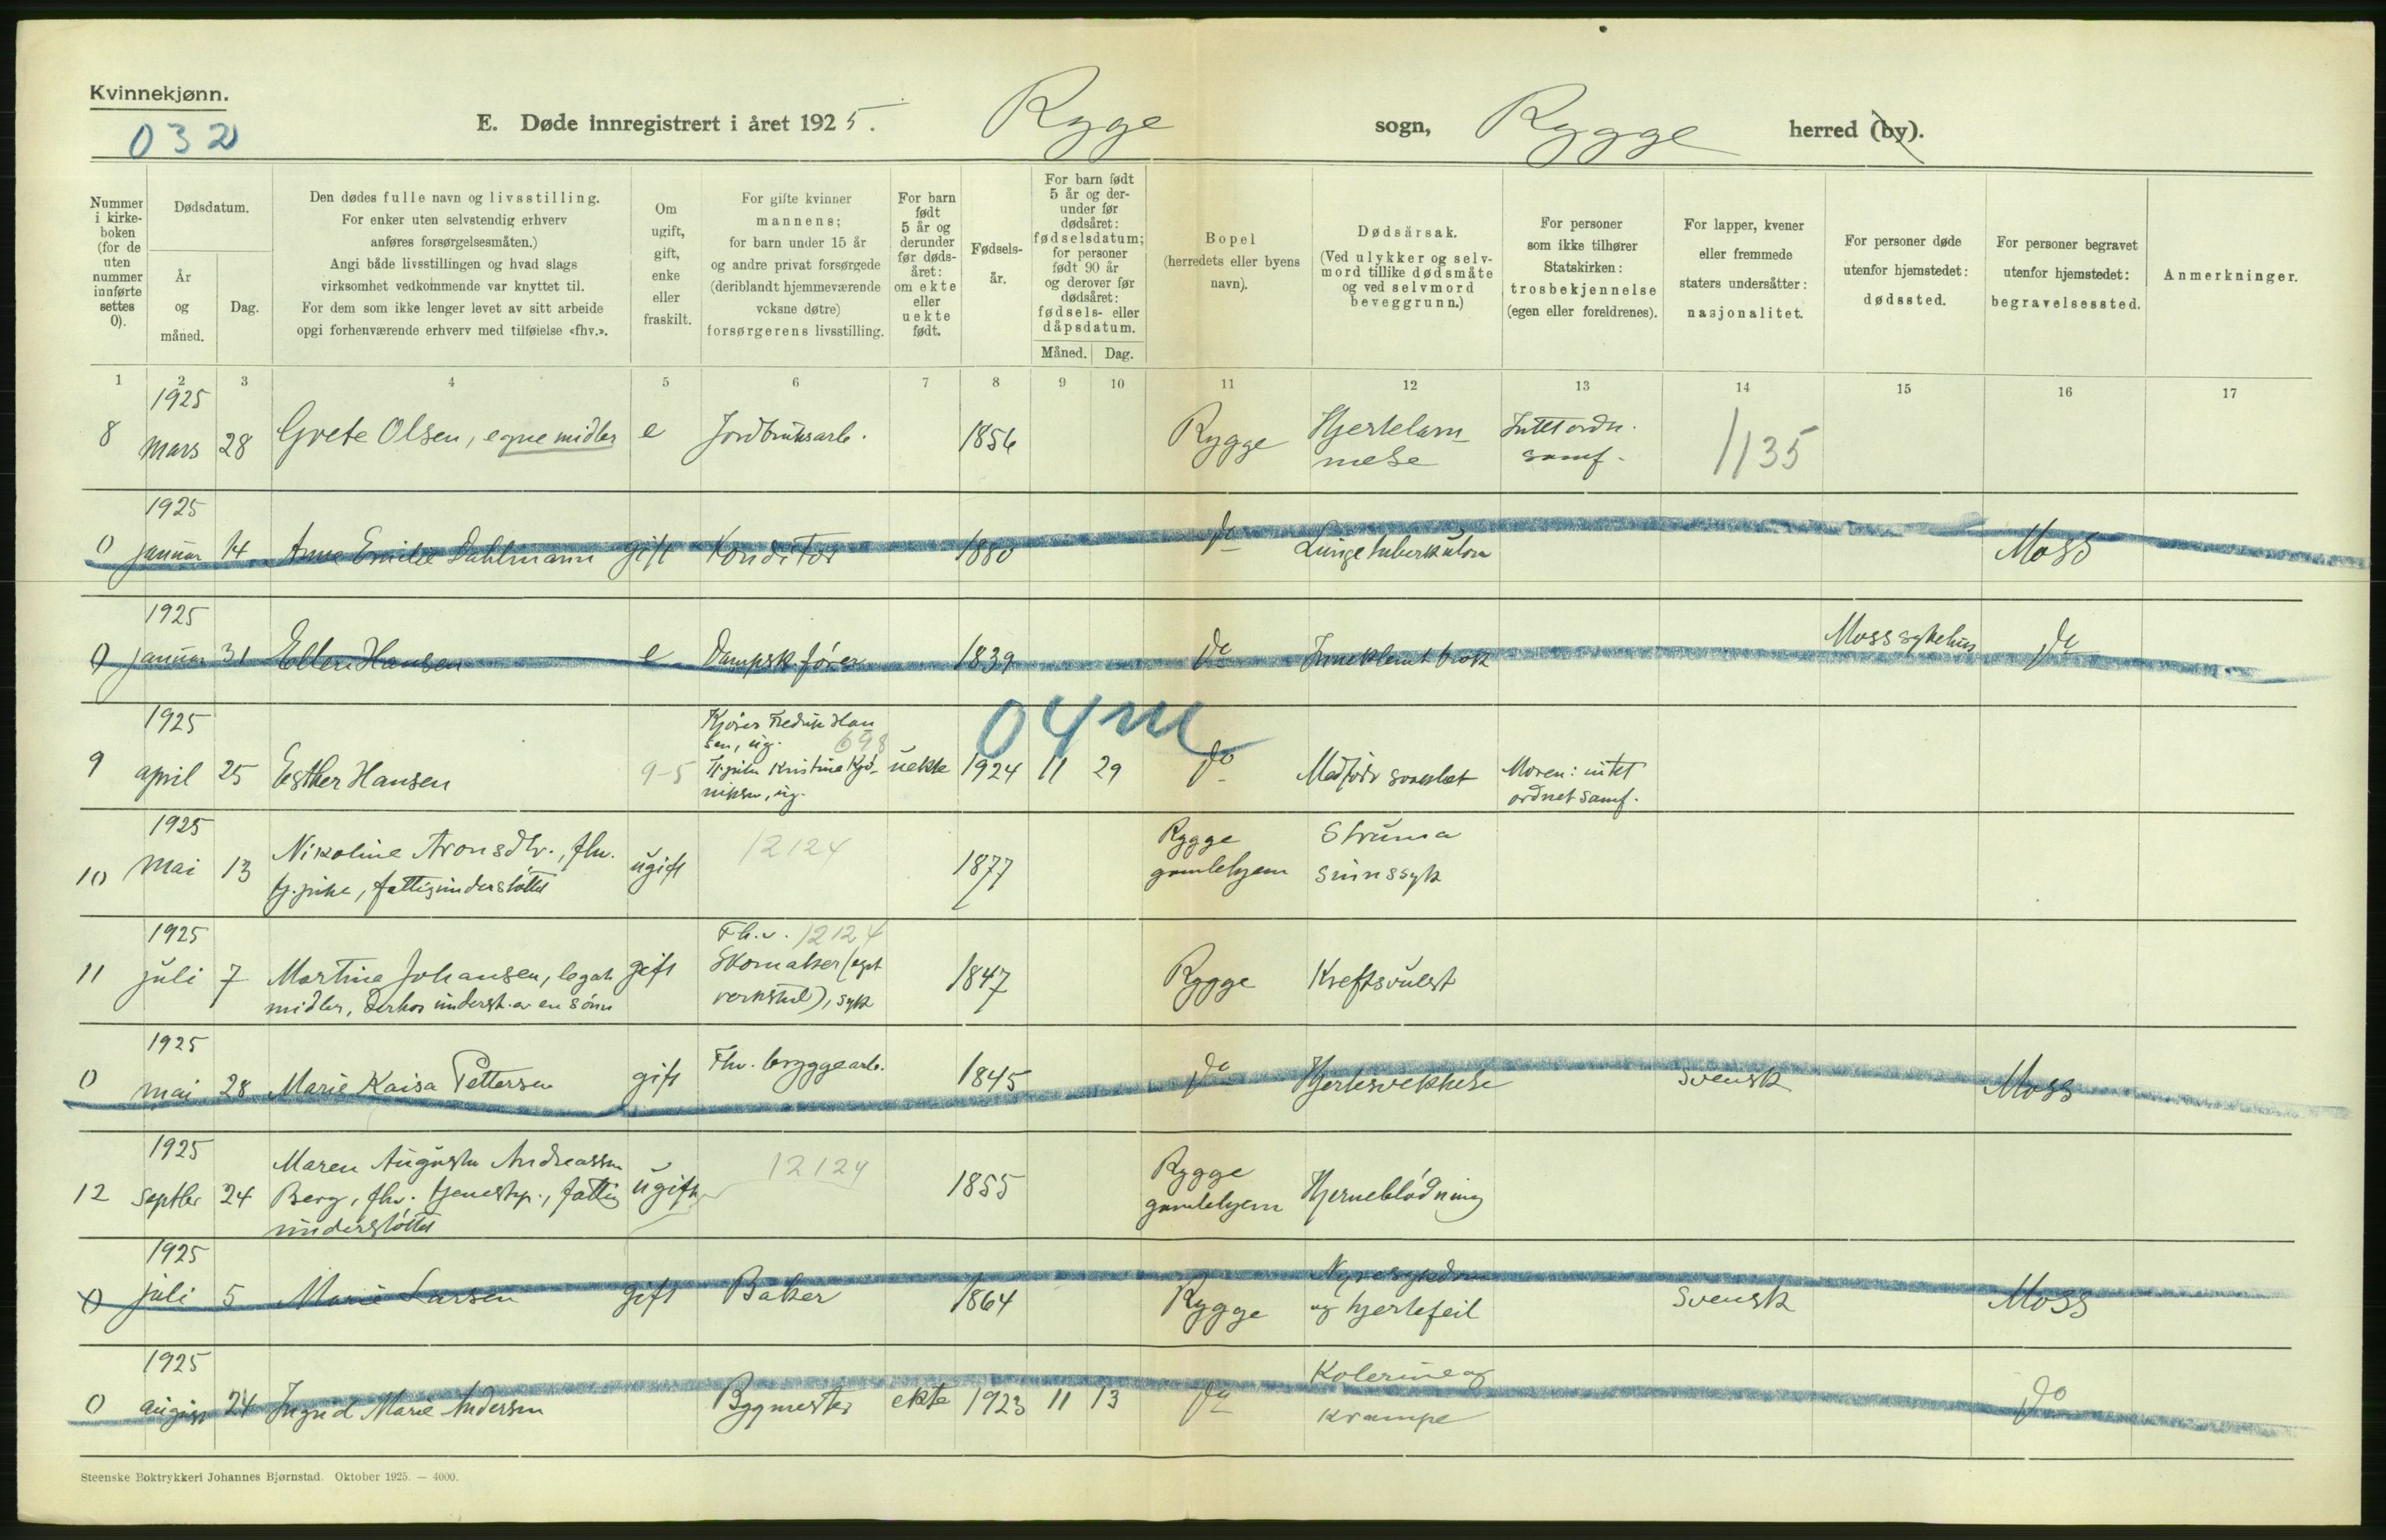 Kvinnekjønn.
032
E. Døde innregistrert i året 1925. Rygge sogn, Rygge herred (by).
Nummer i kirke-boken (for de uten nummer innførte settes 0).
Dødsdatum.
År og måned.
Dag.
Den dødes fulle navn og livsstilling.
For enker uten selvstendig erhverv
anføres forsørgelsesmåten.)
Angi både livsstillingen og hvad slags
virksomhet vedkommende var knyttet til.
For dem som ikke lenger levet av sitt arbeide
opgi forhenværende erhverv med tilføielse «fhv.».
Om ugift, gift, enke eller fraskilt.
For gifte kvinner
mannens;
for barn under 15 år
og andre privat forsørgede
(deriblandt hjemmeværende
voksne døtre)
forsørgerens livsstilling.
For barn født 5 år og derunder før døds-året: om ekte eller uekte født.
Fødsels-år.
For barn født 5 år og der-under før dødsåret: fødselsdatum; for personer født 90 år og derover før dødsåret: fødsels- eller dåpsdatum.
Måned. Dag.
Bopel
(herredets eller byens
navn).
Dødsårsak.
(Ved ulykker og selv-
mord tillike dødsmåte
og ved selvmord
beveggrunn.)
For personer
som ikke tilhører
Statskirken:
trosbekjennelse
(egen eller foreldrenes).
For lapper, kvener
eller fremmede
staters undersåtter:
nasjonalitet.
For personer døde
utenfor hjemstedet:
dødssted.
For personer begravet
utenfor hjemstedet:
begravelsessted.
Anmerkninger.
1 2 3 4 5 6 7 8 9 10 11 12 13 14 15 16 17
1925
8 mars 28 Grete Olsen, egne midler e Jordbruksarb. 1856 Rygge Hjertelam-
melse Intet ordn.
samf. 1135
1925
0 januar 14 Anne Emilie Dahlmann gift Konditor 1880 do Lungetuberkulose Moss
1925
0 januar 31 Ellen Hansen e Dampsk.fører 1839 do Inneklemt brok Moss sykehus do
04m
1925
9 april 25 Esther Hansen 9-5 Fredrik Han
sen, ug. 698
Kristine
ug. uekte 1924 11 29 do Medfødt Moren: intet
ordnet samf.
1925
10 mai 13 Nikoline Aronsdtr., fhv.
tj.pike, fattigunderstøttet ugift 12124 1877 Rygge
gamlehjem Struma
sinnssyk
1925
11 juli 7 Martine Johansen, legat
midler, derhos underst. av en sønn gift Fh.v. 12124
Skomaker (eget
verksted), syk 1847 Rygge Kreftsvulst
1925
0 mai 28 Marie Kaisa Pettersen gift Fhv. bryggearb. 1845 do Hjertesvekkelse svensk Moss
1925
12 septbr 24 Maren Augusta Andreassen
Berg, fhv. tjenestep., fattig
understøttet ugift 12124 1855 Rygge
gamlehjem Hjerneblødning
1925
0 juli 5 Marie Larsen gift Baker 1864 Rygge Nyresykdom
og hjertefeil svensk Moss
1925
0 august 24 Ingrid Marie Andersen Byggmester ekte 1923 11 13 do Kolerine og
krampe do
Steenske Boktrykkeri Johannes Bjørnstad. Oktober 1925. — 4000.